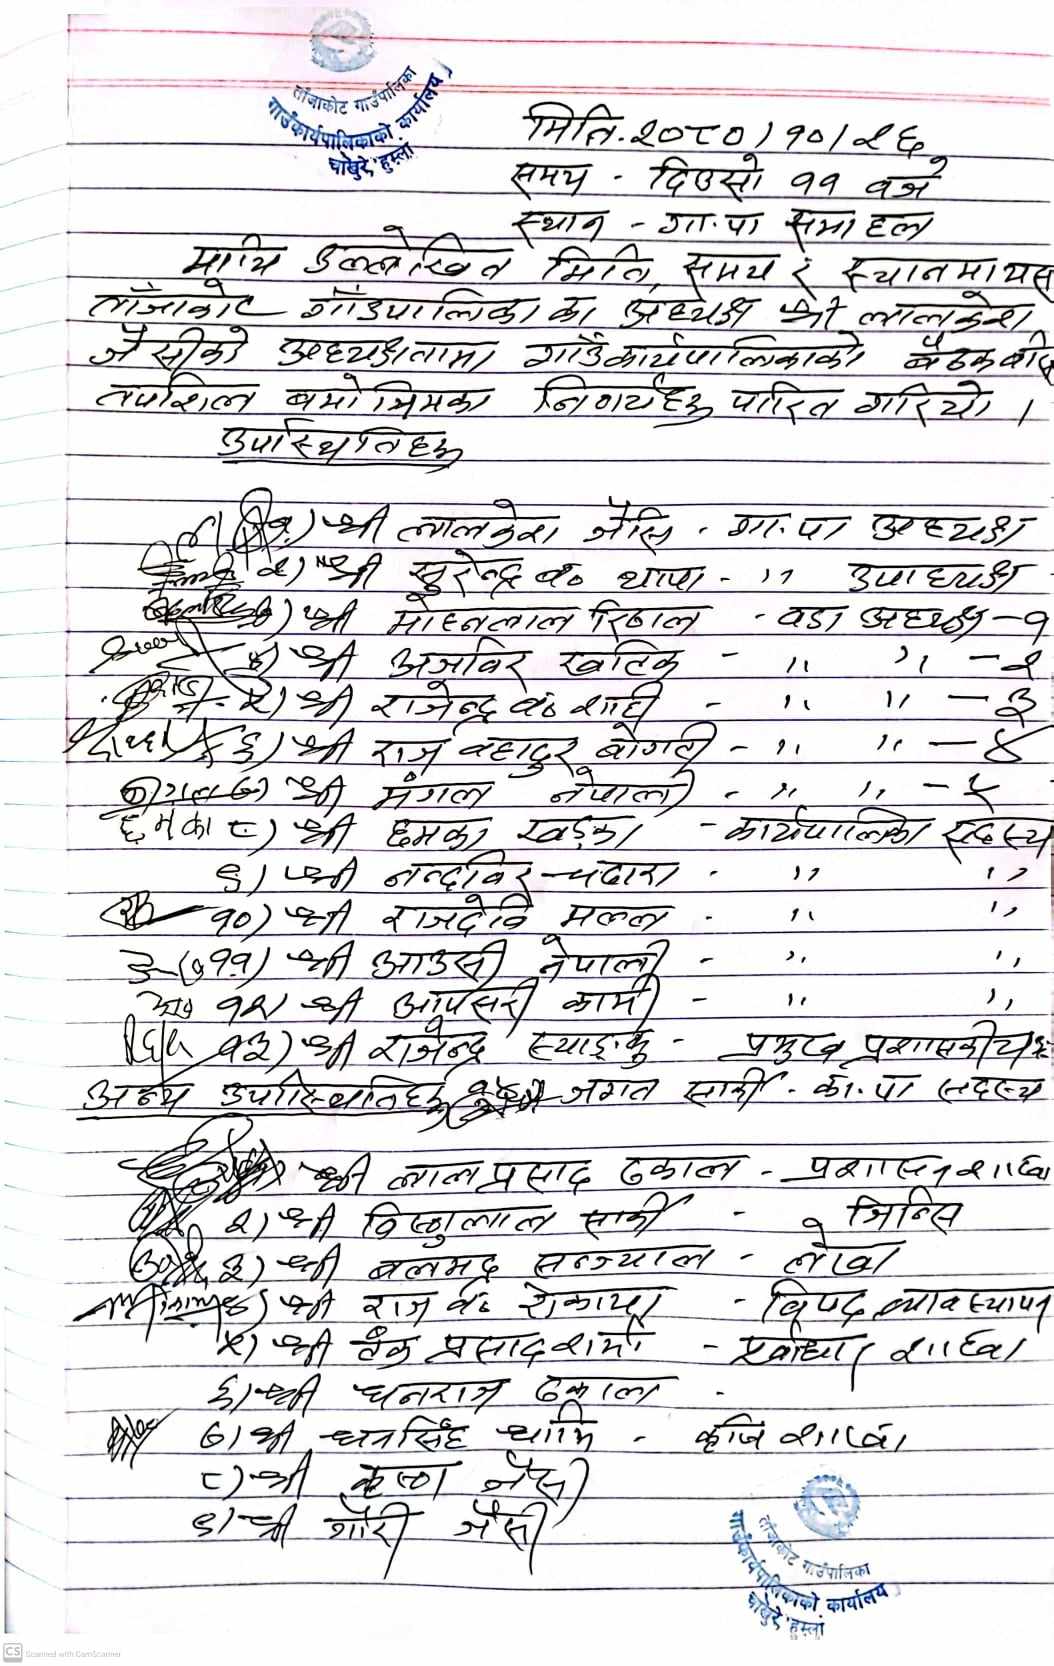 ताँजाकोट गाउँपालिका
गाउँकार्यपालिकाको कार्यालय
घोखुरे, हुम्ला
मिति. २०८०।१०।२६
समय - दिउसो ११ वजे
स्थान - गा.पा सभाहल
माथि उल्लेखित मिति, समय र स्थानमा यस
ताँजाकोट गाँउपालिका का अध्यक्ष श्री लालकेश
जैसीको अध्यक्षतामा गाँउकार्यपालिकाको बैठक बसि
तपशिल बमोजिमका निर्णयहरु पारित गरियो ।
उपस्थितिहरु
१) श्री लालकेश जैसि - गा.पा अध्यक्ष
२) श्री सुरेन्द्र ब० थापा - ,, उपाध्यक्ष
३) श्री मोहनलाल रिजाल - वडा अध्यक्ष - १
४) श्री अजविर खत्रि - ,, ,, - २
५) श्री राजेन्द्र ब० शाही - ,, ,, - ३
६) श्री राज बहादुर बोगटी - ,, ,, - ४
७) श्री मंगल नेपाली - ,, ,, - ५
छमका ८) श्री छमका खड्का - कार्यपालिका सदस्य
९) श्री नन्दविर चदारा - ,, ,,
१०) श्री राजदेवि मल्ल - ,, ,,
११) श्री आउसी नेपाली - ,, ,,
१२) श्री आपसरी कामी - ,, ,,
१३) श्री राजेन्द्र स्याङ्कु - प्रमुख प्रशासकीय
अन्य उपस्थितिहरु जगत सार्की - का.पा सदस्य
श्री लाल प्रसाद ढकाल - प्रशासन शाखा
२) श्री विष्णुलाल सार्की - जिन्सि
३) श्री बलभद्र सन्ज्याल - लेखा
४) श्री राज ब० रोकाया - विपद व्यवस्थापन
५) श्री टेक प्रसाद शर्मा - पूर्वाधार शाखा
६) श्री धनराज ढकाल -
७) श्री धनसिंह थापि - कृषि शाखा
८) श्री कृष्ण जैसी
९) श्री गौरी जैसी
ताँजाकोट गाउँपालिका
गाउँकार्यपालिकाको कार्यालय
घोखुरे, हुम्ला
CS Scanned with CamScanner